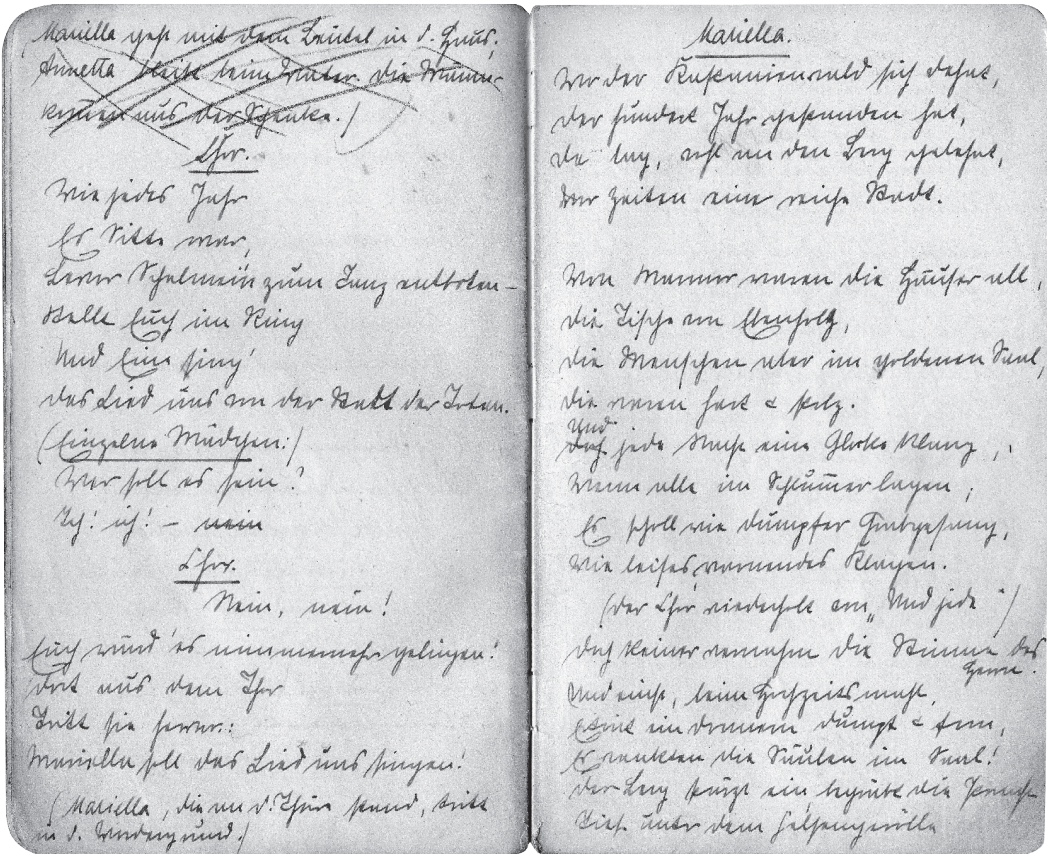 (Mariella geht mit dem Beutel in d. Haus,
Annetta bleibt beim Vater. Die Männer
kom̄en aus der Schenke.)
Chor.
Wie jedes Jahr
Es Sitte war,
Bevor Schalmein zum Tanz entboten –
Stellt Euch im Ring
Und Eine sing'
Das Lied uns von der Stadt der Toten.
(Einzelne Mädchen:)
Wer soll es sein?
Ich! ich! – nein
Chor.
Nein, nein!
Euch würd' es nimmermehr gelingen!
Dort aus dem Thor
Tritt sie hervor:
Mariella soll das Lied uns singen!
(Mariella, die an d. Thüre stand, tritt
in d. Vordergrund.)
Mariella.
Wo der Kastanienwald sich dehnt,
Der hundert Jahr gestanden hat,
Da lag, an den Berg gelehnt,
Vor Zeiten eine reiche Stadt.
Von Marmor waren die Häuser all,
Die Tische von Ebenholz,
Die Menschen aber im goldenen Saal,
Die waren hart & stolz.
Und
Doch jede Nacht eine Glocke klang,
Wenn alle im Schlum̄er lagen,
Es scholl wie dumpfer Grabgesang,
Wie leises, warnendes Klagen.
(Der Chor wiederholt von „Und jede")
Doch keiner vernahm die Stimme des
Herrn.
Und einst, beim Hochzeitsmahl,
ein Donnern dumpf & fern,
Es wankten die Säulen im Saal!
Der Berg stürzt ein, begräbt die Pracht
Tief unter dem Felsengerölle